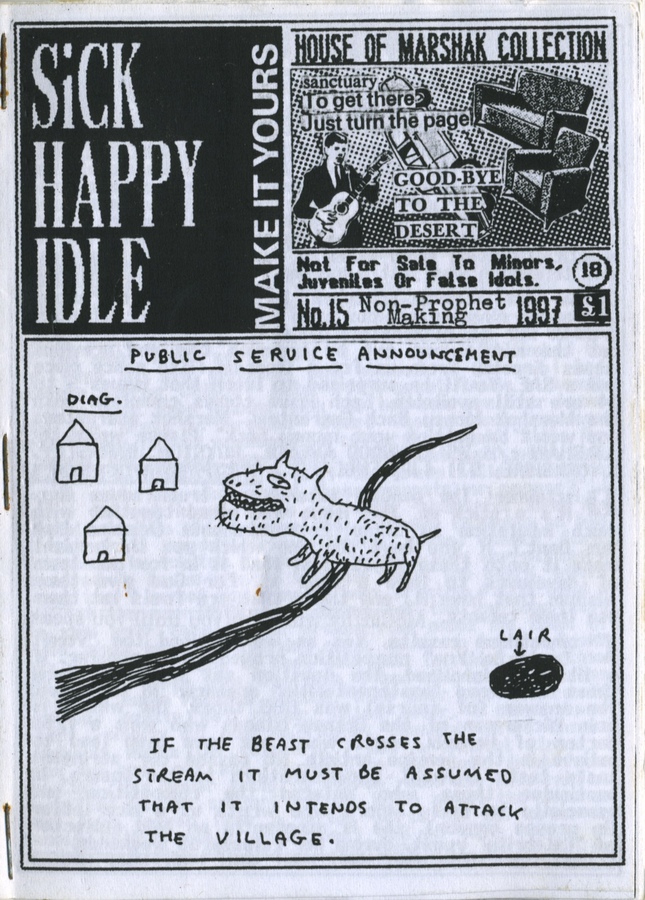 SiCK
HAPPY
IDLE
MAKE IT YOURS
HOUSE OF MARSHAK COLLECTION
sanctuary
To get there
Just turn the page
GOOD-BYE
TO THE
DESERT
Not For Sale To Minors,
Juveniles Or False Idols.
18
No.15 Non-Prophet Making 1997 £1
PUBLIC SERVICE ANNOUNCEMENT
DIAG.
LAIR
IF THE BEAST CROSSES THE
STREAM IT MUST BE ASSUMED
THAT IT INTENDS TO ATTACK
THE VILLAGE.